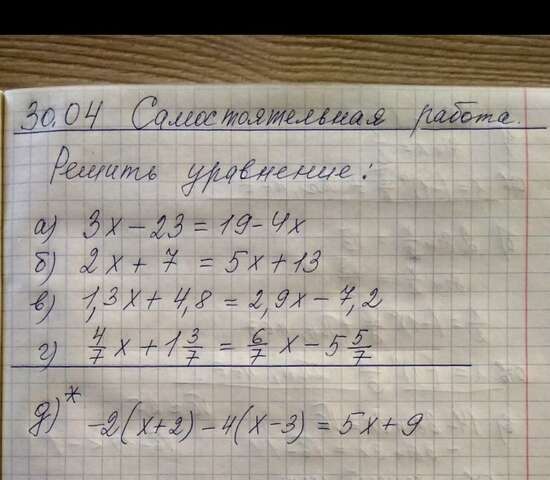 30.04 Самостоятельная работа.
Решить уравнение:
а) 3x - 23 = 19 - 4x
б) 2x + 7 = 5x + 13
в) 1,3x + 4,8 = 2,9x - 7,2
г) 4/7 x + 1 3/7 = 6/7 x - 5 5/7
д)* -2(x+2) - 4(x-3) = 5x + 9